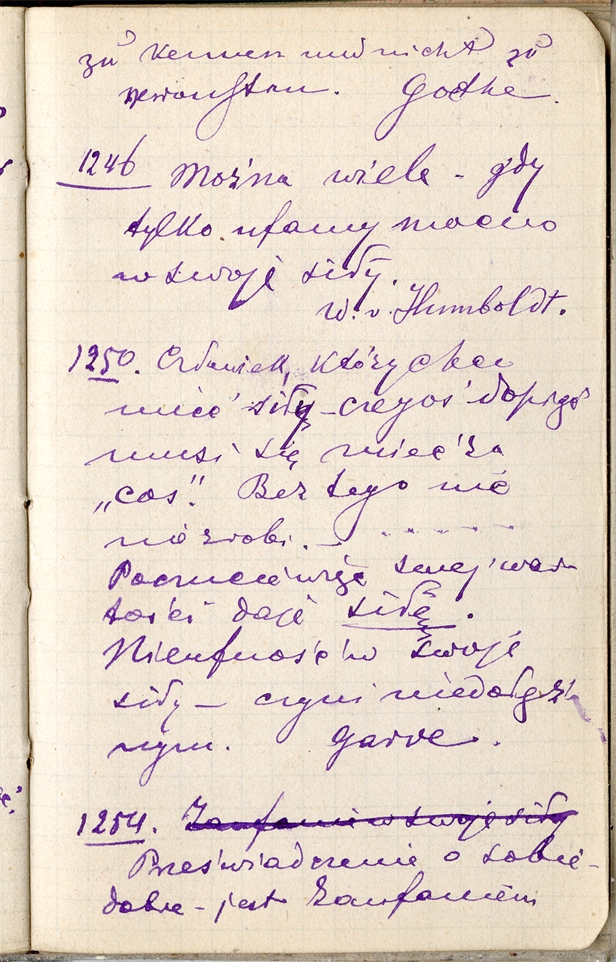 zu kennen und nicht zu
Göthe.
1246 Można wiele - gdy
tylko ufamy mocno
w swoje siły.
W. v. Humboldt.
1250. Człowiek, który chce
mieć siłę - czegoś dopiąć
musi się mieć za
„coś". Bez tego nic
nie zrobi. -
Poczucie więc swej war
tości daje siłę.
Nieufność w swoje
siły - czyni niedołęż
nym. Garve.
1254. Zaufanie w swoje siły
Przeświadczenie o sobie
dobre - jest zaufaniem